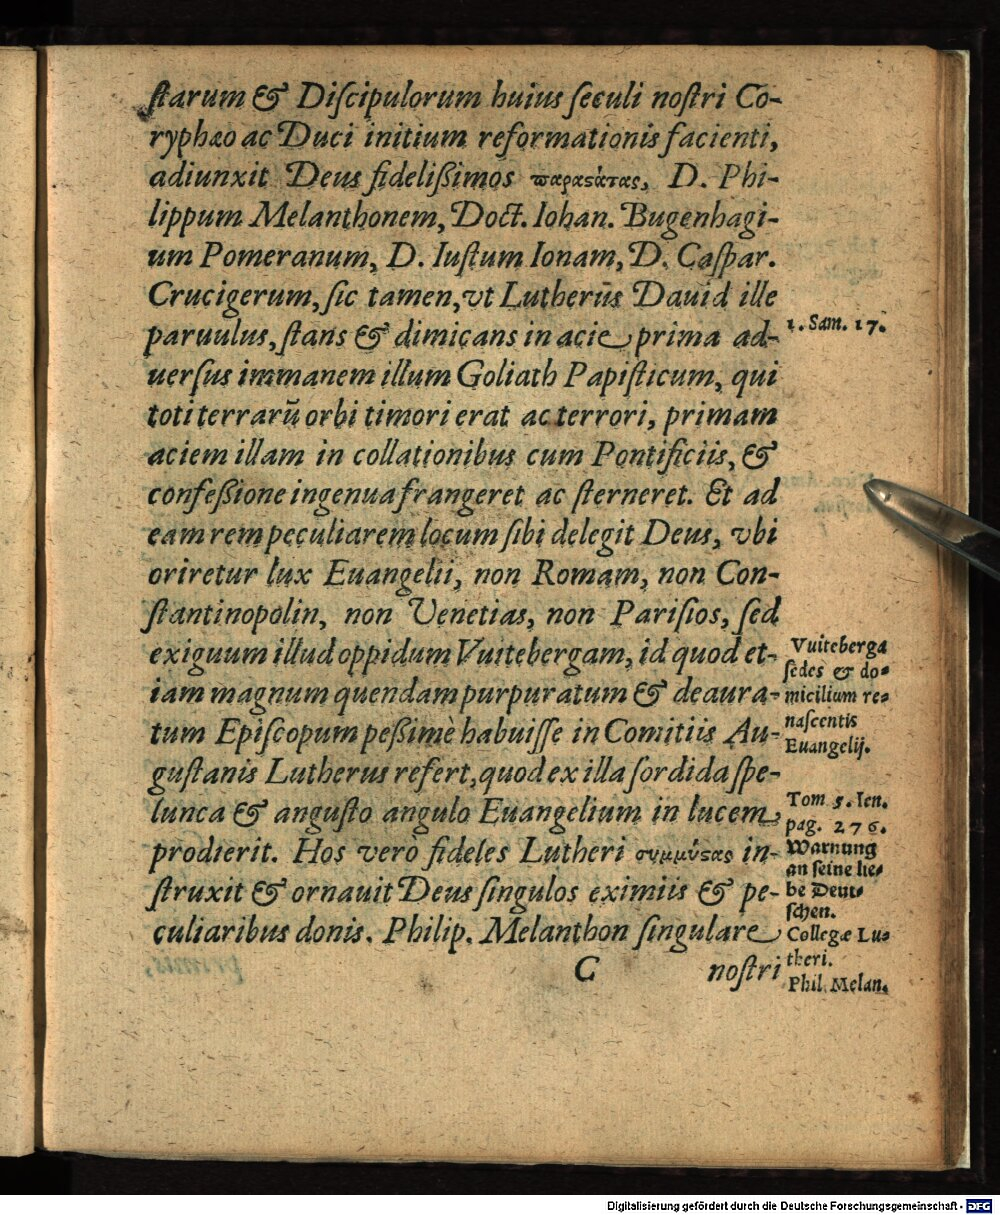 ſtarum & Diſcipulorum huius ſeculi noſtri Co-
ryphæo ac Duci initium reformationis facienti,
adiunxit Deus fidelißimos παραϛάτας, D. Phi-
lippum Melanthonem, Doct. Iohan. Bugenhagi-
um Pomeranum, D. Iuſtum Ionam, D. Caſpar.
Crucigerum, ſic tamen, vt Lutherus̄ Dauid ille
paruulus, ſtans & dimicans in acie prima ad-
uerſus immanem illum Goliath Papiſticum, qui
toti terrarū orbi timori erat ac terrori, primam
aciem illam in collationibus cum Pontificiis, &
confeßione ingenua frangeret ac ſterneret. Et ad
eam rem peculiarem locum ſibi delegit Deus, vbi
oriretur lux Euangelii, non Romam, non Con-
ſtantinopolin, non Venetias, non Pariſios, ſed
exiguum illud oppidum Vuitebergam, id quod et-
iam magnum quendam purpuratum & deaura-
tum Epiſcopum peßimè habuiſſe in Comitiis Au-
guſtanis Lutherus refert, quod ex illa ſordida ſpe-
lunca & anguſto angulo Euangelium in lucem
prodierit. Hos verò fideles Lutheri συμμύϛας in-
ſtruxit & ornauit Deus ſingulos eximiis & pe-
culiaribus donis. Philip. Melanthon ſingulare
C noſtri
1. Sam. 17.
Vuiteberga
ſedes & do-
micilium re-
naſcentis
Euangelij.
Tom 5. Ien.
pag. 276.
Warnung
an ſeine lie-
be Deut-
ſchen.
Collegæ Lu-
theri.
Phil. Melan.
Digitalisierung gefördert durch die Deutsche Forschungsgemeinschaft - DFG